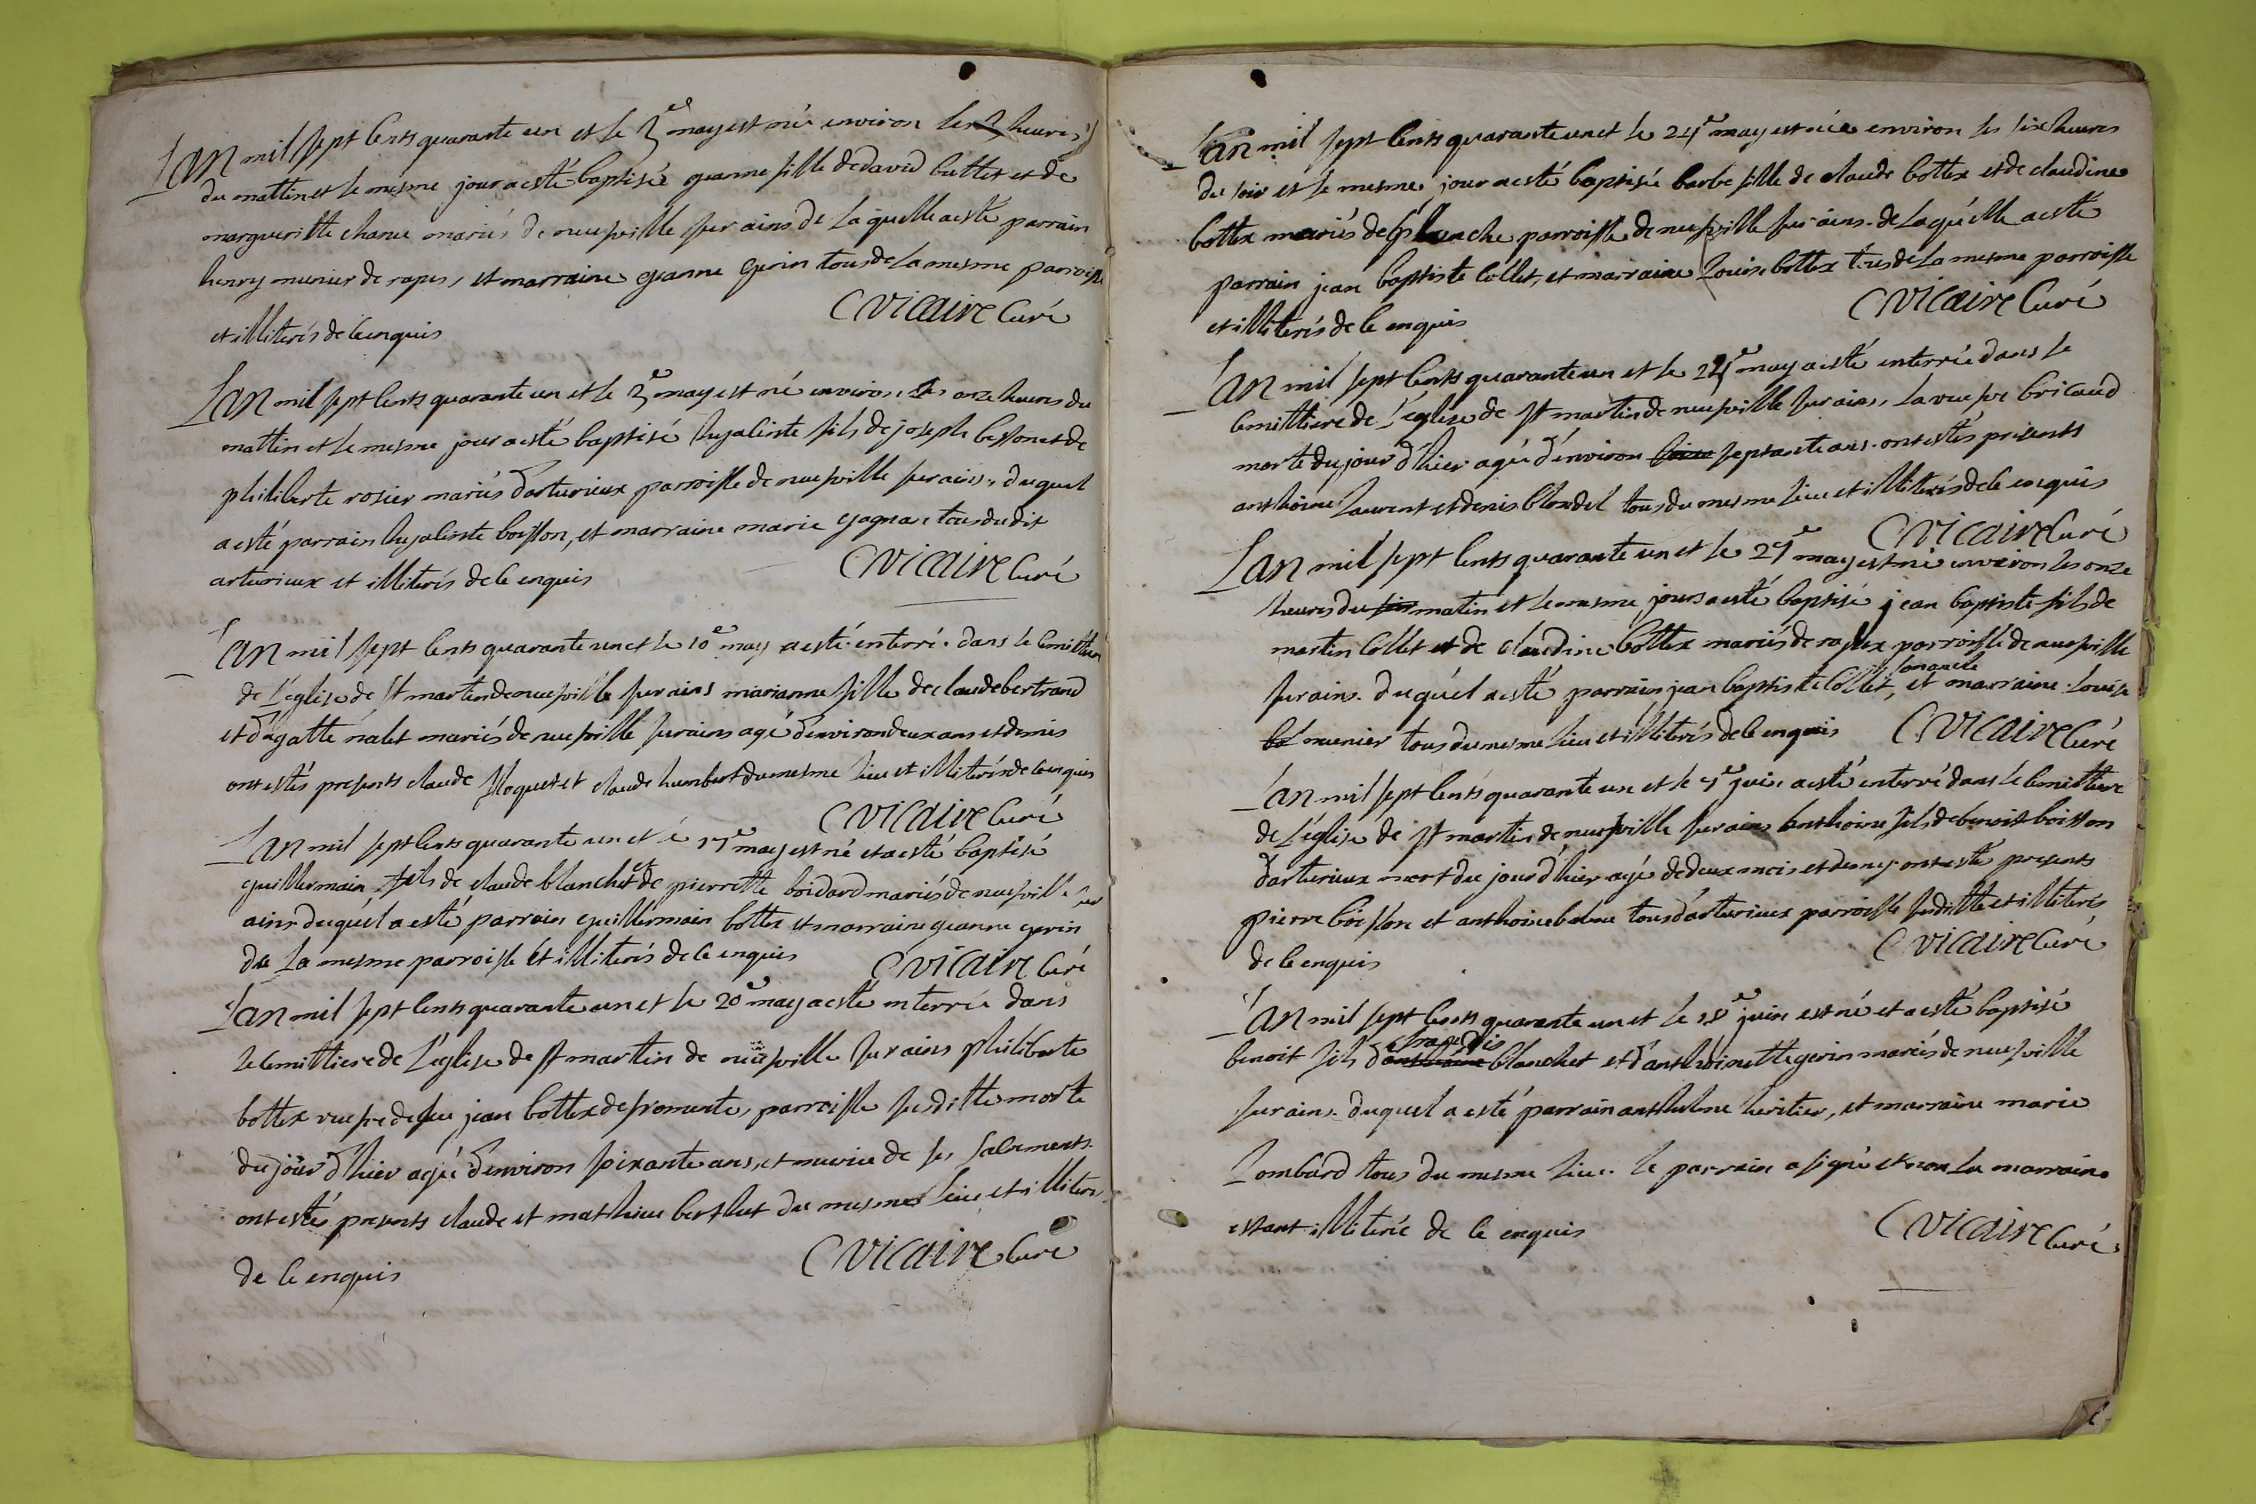 Lan mil sept cents quarante un et le 3e may est née environ les heures
du mattin et le mesme jour a esté baptisée jeanne fille de david buttet et de
margueritte chanu mariés de neufville sur ains de laquelle a esté parrain
henry munier de rapes, et marraine jeanne gerin tous de la mesme parroisse
et illiterés de ce enquis C Vicaire Curé
Lan mil sept cents quarante un et le 3e may est né environ les onze heures du
mattin et le mesme jour a esté baptisé hyacinte fils de joseph besson et de
philiberte rosier mariés d'arturieux parroisse de neufville sur ains. duquel
a esté parrain hyacinte boisson, et marraine marie gagnan tous dudit
arturieux et illiterés de ce enquis C Vicaire Curé
Lan mil sept cents quarante un et le 10e may a esté enterré dans le cemittiere
de l'eglise de st martin de neufville sur ains marianne fille de claude bertrand
et d'agatte nalet mariés de neufville sur ains agé d'environ deux ans et demis
ont estés presents claude floquet et claude humbert du mesme lieu et illiterés de ce enquis
C Vicaire Curé
Lan mil sept cents quarante un et le 17e may est né et a esté baptisé
guillermain fils de claude blanchet et de pierrette bridard mariés de neufville sur
ains duquel a esté parrain guillermain bottex et marraine jeanne gerin
de la mesme parroisse et illiterés de ce enquis C Vicaire Curé
Lan mil sept cents quarante un et le 20e may a esté enterrée dans
le cemittiere de l'eglise de st martin de neufville sur ains philiberte
bottex veufve de feu jean bottex de fromente, parroisse susditte morte
du jour d'hier agée d'environ sixante ans, et munie de ses sacrements.
ont estés presents claude et mathieu berthet du mesme lieu et illiterés
de ce enquis C Vicaire Curé
Lan mil sept cents quarante un et le 24e may est née environ les six heures
du soir et le mesme jour a esté baptisée barbe fille de claude bottex et de claudine
bottex mariés de planche parroisse de neufville sur ains. de laquelle a esté
parrain jean baptiste collet, et marraine louise bottex tous de la mesme parroisse
et illiterés de ce enquis C Vicaire Curé
Lan mil sept cents quarante un et le 24e may a esté enterrée dans le
cemittiere de l'eglise de st martin de neufville sur ains, la veufve bricaud
morte du jour d'hier agée d'environ septante ans. ont estés presents
anthoine laurent et denis blondel tous du mesme lieu et illiterés de ce enquis
C Vicaire Curé
Lan mil sept cents quarante un et le 27e may est né environ les onze
heures du soir matin et le mesme jour a esté baptisé jean baptiste fils de
martin collet et de claudine bottex mariés de rapex parroisse de neufville
sur ains. duquel a esté parrain jean baptiste collet, et marraine louise
munier tous du mesme lieu et illiterés de ce enquis C Vicaire Curé
Lan mil sept cents quarante un et le 7e juin a esté enterré dans le cemittiere
de l'eglise de st martin de neufville sur ains anthoine fils de benoit boisson
d'arturieux mort du jour d'hier agé de deux mois et demy. ont esté presents
pierre boisson et anthoine bolme tous d'arturieux parroisse susditte et illiterés
de ce enquis C Vicaire Curé
Lan mil sept cents quarante un et le 18e juin est né et a esté baptisé
françois
benoit fils d'anthoine blanchet et d'anthoinette gerin mariés de neufville
sur ains. duquel a esté parrain anthelme heritier, et marraine marie
Lombard tous du mesme lieu. le parrain a signé et non la marraine
estant illiterée de ce enquis C Vicaire Curé